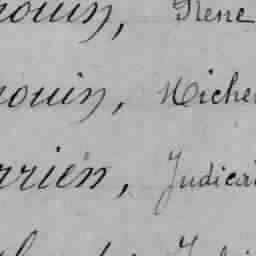 nouin, René
nouin, Michel
rrien, Judica